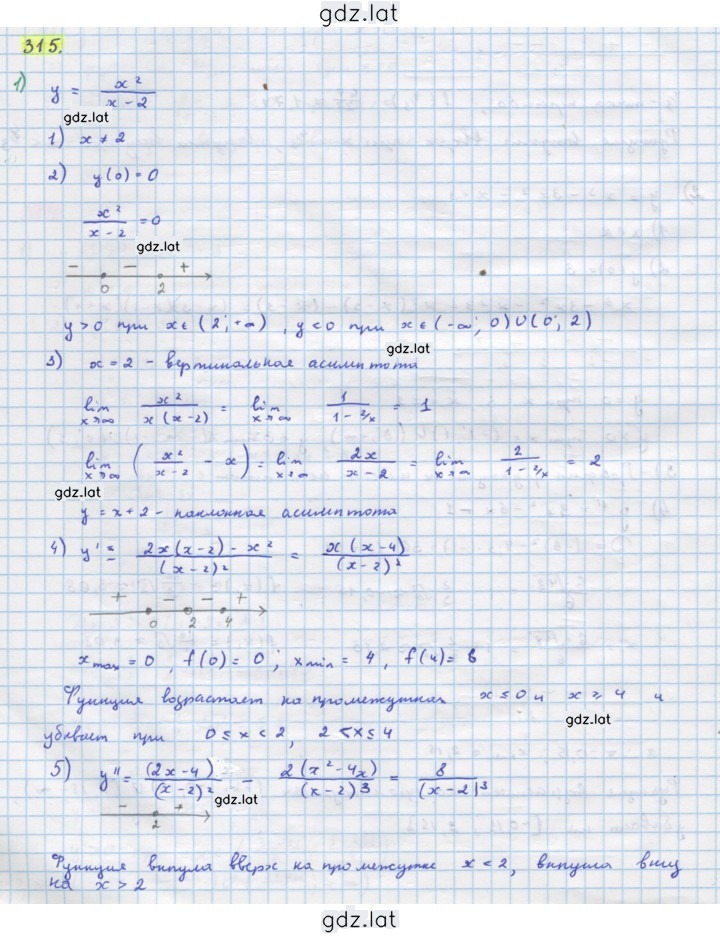 gdz.lat
315.
1) y = x²/(x − 2)
gdz.lat
1) x ≠ 2
2) y(0) = 0
x²/(x − 2) = 0
gdz.lat
− − +
0 2
y > 0 при x ∈ (2; +∞), y < 0 при x ∈ (−∞; 0) ∪ (0; 2)
gdz.lat
3) x = 2 – вертикальная асимптота
lim x→∞ x²/(x(x − 2)) = lim x→∞ 1/(1 − 2/x) = 1
lim x→∞ (x²/(x − 2) − x) = lim x→∞ 2x/(x − 2) = lim x→∞ 2/(1 − 2/x) = 2
gdz.lat
y = x + 2 – наклонная асимптота
4) y' = (2x(x − 2) − x²)/(x − 2)² = x(x − 4)/(x − 2)²
+ − − +
0 2 4
xmax = 0, f(0) = 0; xmin = 4, f(4) = 8
Функция возрастает на промежутках x ≤ 0 и x ≥ 4 и
gdz.lat
убывает при 0 ≤ x < 2, 2 < x ≤ 4
5) y'' = (2x − 4)/(x − 2)² − 2(x² − 4x)/(x − 2)³ = 8/(x − 2)³
gdz.lat
− +
2
Функция выпукла вверх на промежутке x < 2, выпукла вниз
на x > 2
gdz.lat